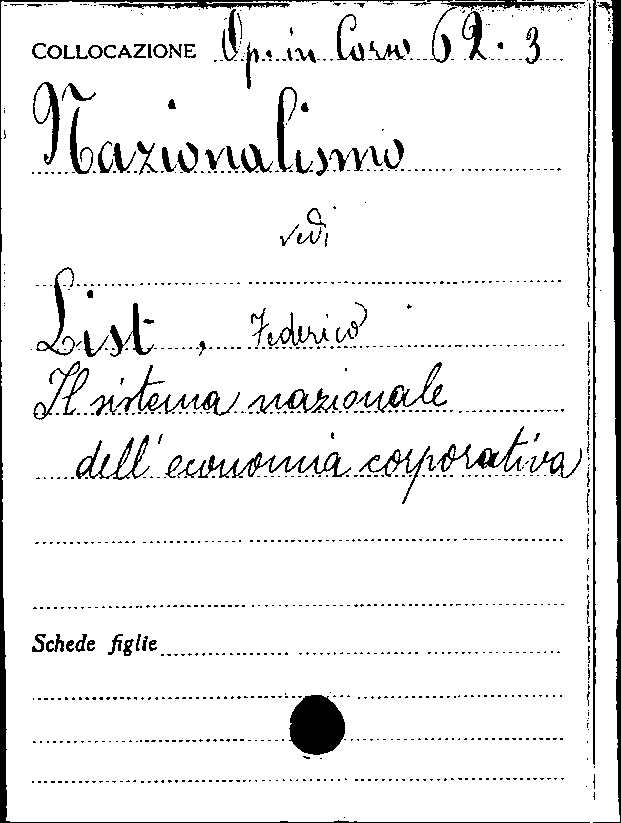 COLLOCAZIONE Op. in Corso 62.3
Nazionalismo
vedi
List, Federico
Il sistema nazionale
dell'economia corporativa
Schede figlie